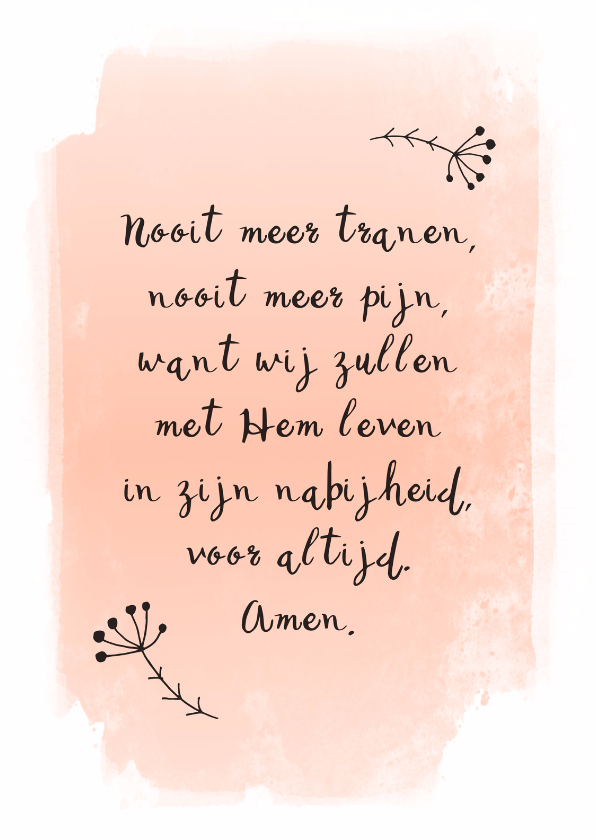 Nooit meer tranen,
nooit meer pijn,
want wij zullen
met Hem leven
in zijn nabijheid,
voor altijd.
Amen.